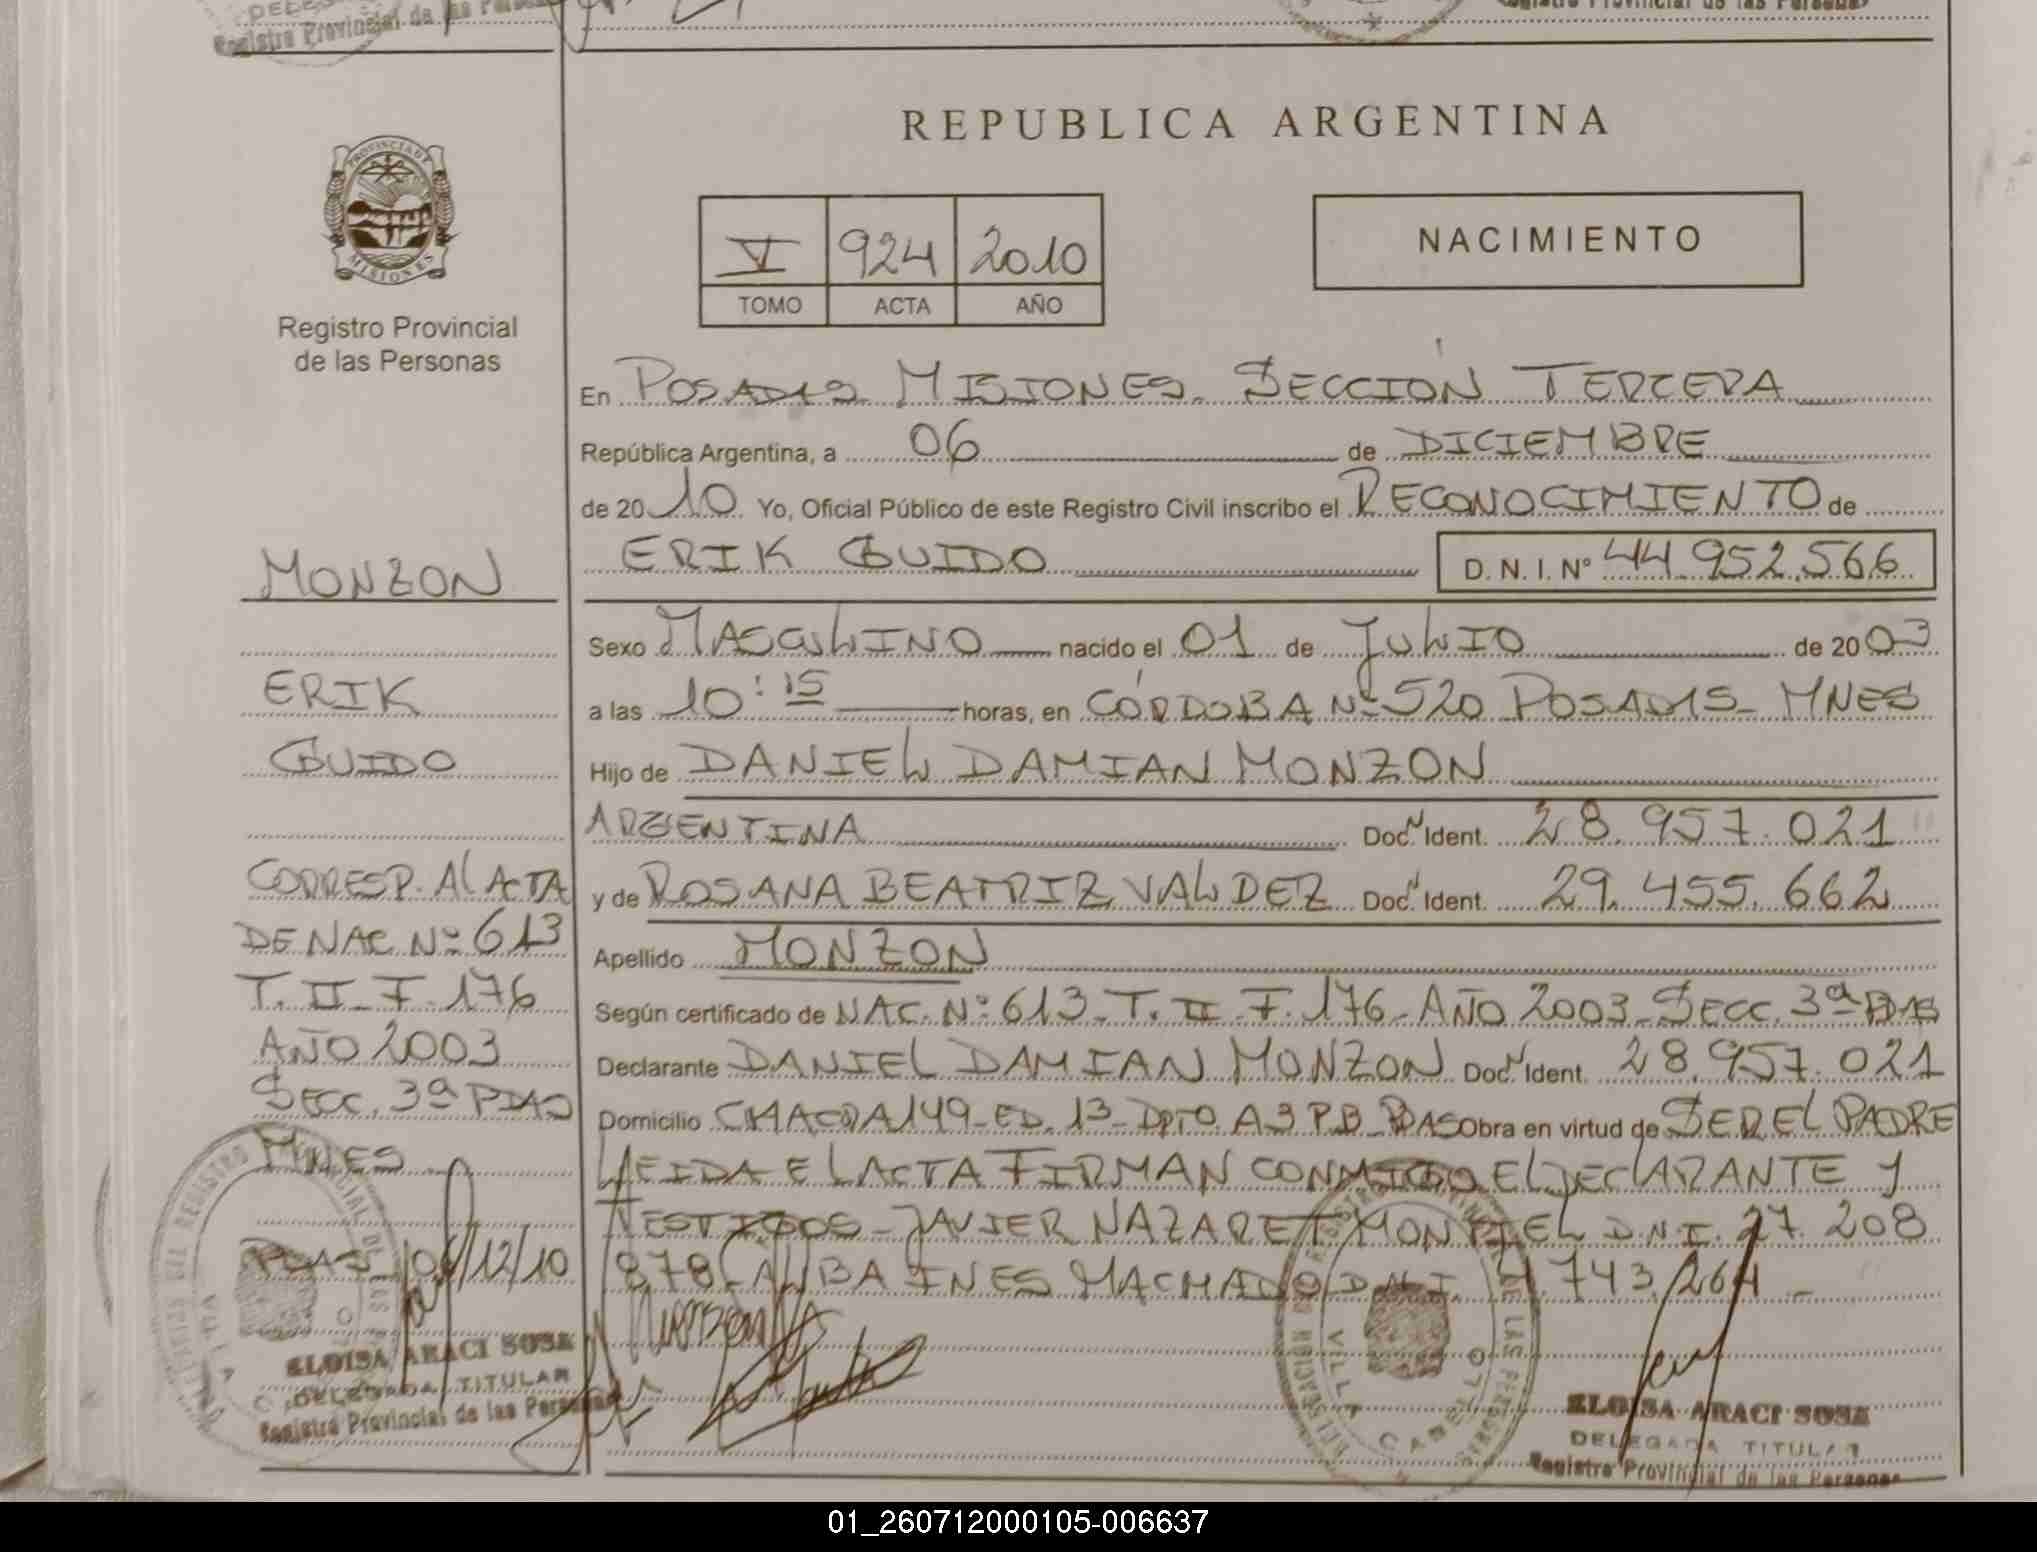 Registro Provincial de las Personas
REPUBLICA ARGENTINA
PROVINCIA DE
MISIONES
Registro Provincial
de las Personas
V 924 2010
TOMO ACTA AÑO
NACIMIENTO
En POSADAS MISIONES. SECCIÓN TERCERA
República Argentina, a 06 de DICIEMBRE
de 2010 Yo, Oficial Público de este Registro Civil inscribo el RECONOCIMIENTO de
ERIK GUIDO D. N. I. Nº 44.952.566
Sexo MASCULINO nacido el 01 de JULIO de 2003
a las 10:15 horas, en CÓRDOBA Nº 520 POSADAS - MNES
Hijo de DANIEL DAMIAN MONZON
ARGENTINA Doc. Ident. 28.957.021
y de ROSANA BEATRIZ VALDEZ Doc. Ident. 29.455.662
Apellido MONZON
Según certificado de NAC. Nº 613 - T. II - F. 176 - AÑO 2003 - SECC. 3ª PDAS
Declarante DANIEL DAMIAN MONZON Doc. Ident. 28.957.021
Domicilio CHACRA 149 - ED. 13 - DPTO. A3 P.B - PDAS Obra en virtud de SER EL PADRE
LEIDA EL ACTA FIRMAN CONMIGO EL DECLARANTE Y
TESTIGOS - JAVIER NAZARET MONTIEL D.N.I. 27.208
878 - ALBA INES MACHADO D.N.I. 743.264 -
MONZON
ERIK
GUIDO
CORRESP. AL ACTA
DE NAC. Nº 613
T. II - F. 176
AÑO 2003
SECC. 3ª PDAS
MNES
PDAS 06/12/10
ELOISA ARACI SOSA
DELEGADA TITULAR
Registro Provincial de las Personas
VILLA CABELLO
ELOISA ARACI SOSA
DELEGADA TITULAR
Registro Provincial de las Personas
01_260712000105-006637